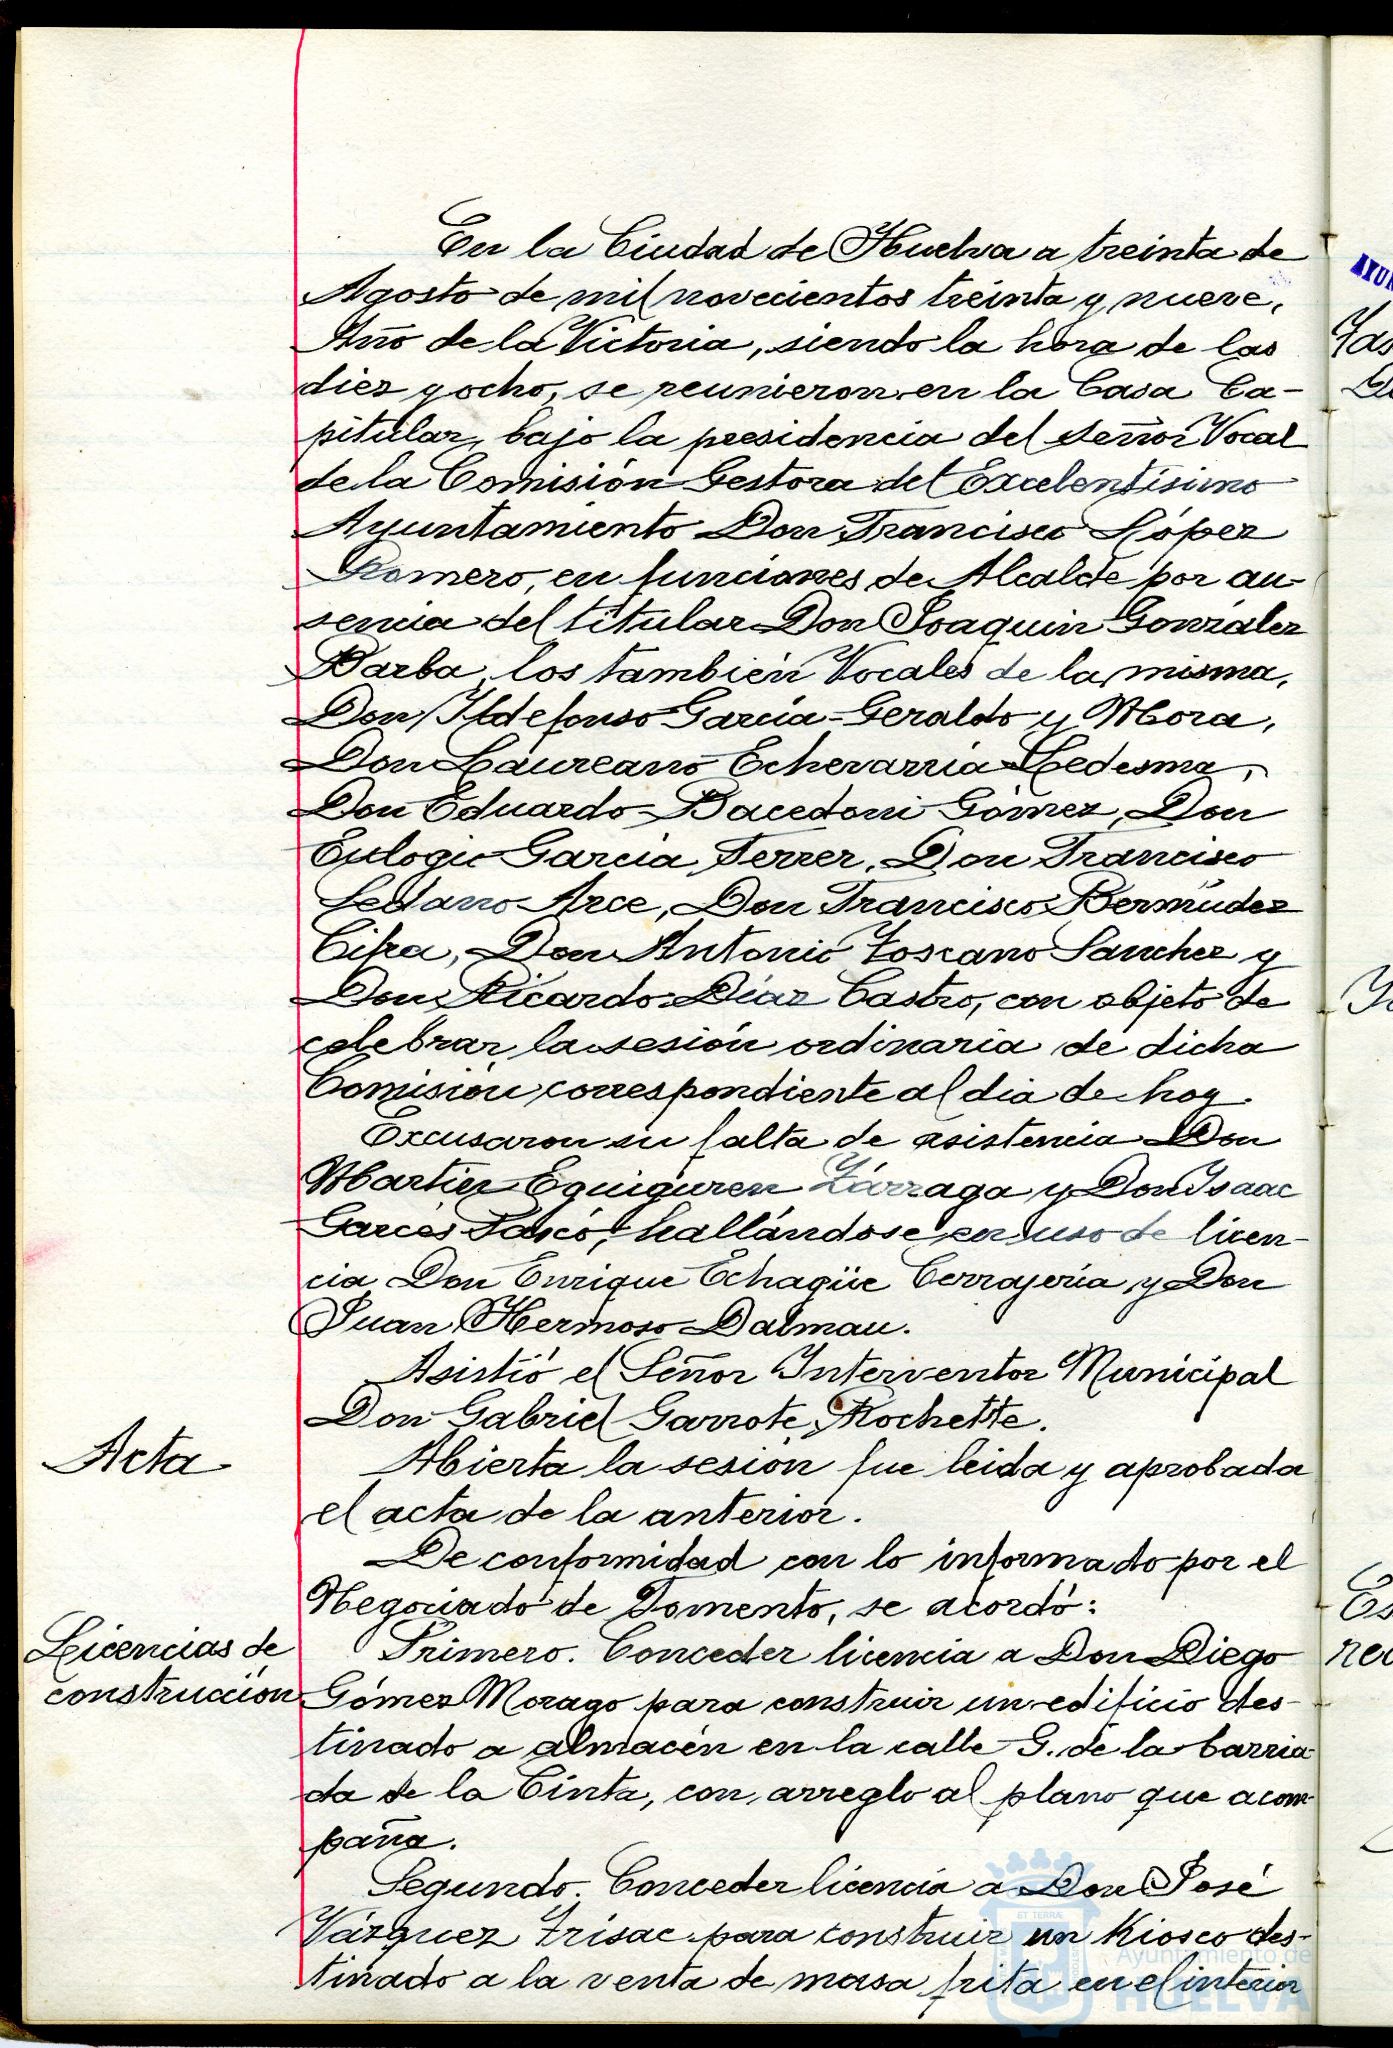 En la Ciudad de Huelva a treinta de
Agosto de mil novecientos treinta y nueve,
Año de la Victoria, siendo la hora de las
diez y ocho, se reunieron en la Casa Ca-
pitular, bajo la presidencia del señor Vocal
de la Comisión Gestora del Excelentísimo
Ayuntamiento Don Francisco López
Romero, en funciones de Alcalde por au-
sencia del titular Don Joaquin González
Barba, los también Vocales de la misma,
Don Ildefonso García-Geraldo y Mora,
Don Laureano Echevarría Ledesma,
Don Eduardo Bacedoni Gómez, Don
Eulogio García Ferrer, Don Francisco
Sedano Arce, Don Francisco Bermúdez
Cifra, Don Antonio Toscano Sanchez y
Don Ricardo Díaz Castro, con objeto de
celebrar la sesión ordinaria de dicha
Comisión correspondiente al dia de hoy.
Excusaron su falta de asistencia Don
Martin Eguiguren Zárraga y Don Isaac
Garcés Pascó, hallándose en uso de licen-
cia Don Enrique Echagüe Cerrajería y Don
Juan Hermoso Dalmau.
Asistió el Señor Interventor Municipal
Don Gabriel Garrote Rochette.
Acta
Abierta la sesión fue leida y aprobada
el acta de la anterior.
De conformidad con lo informado por el
Negociado de Fomento, se acordó:
Licencias de
construcción
Primero. Conceder licencia a Don Diego
Gómez Morago para construir un edificio des-
tinado a almacén en la calle G. de la barria-
da de la Cinta, con arreglo al plano que acom-
paña.
Segundo. Conceder licencia a Don José
Vázquez Frisac para construir un Kiosco des-
tinado a la venta de masa frita en el interior
Ayuntamiento de
HUELVA